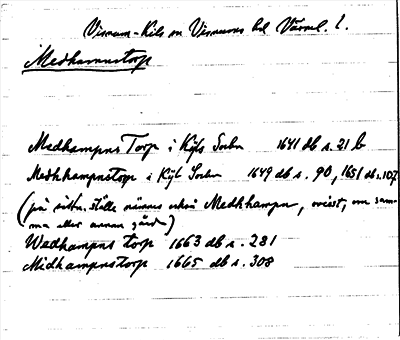 Visnum-Kils sn Visnums hd Värml. l.
Medhamnstorp
Medhampns Torp i Kijls Sochn 1641 db s. 21 b
Medhkampnstorp i Kijl Sochn 1649 db s. 90, 1651 db s. 107
(på sistn. ställe nämnes också Medkhampn, ovisst, om sam-
ma eller annan gård)
Wedhampns torp 1663 db s. 281
Midhampnstorp 1665 db s. 308